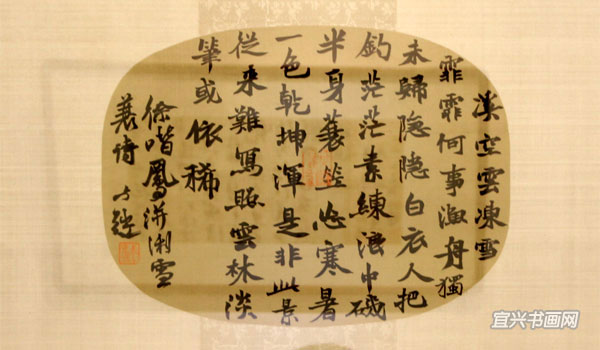 溪空雲凍雪
霏霏何事漁舟獨
未歸隐隐白衣人把
釣茫茫素練浪中磯
半身蓑笠忘寒暑
一色乾坤渾是非此景
從來難寫照雲林淡
筆或依稀
徐喈鳳洴浰雪
蓑詩
宜兴书画网